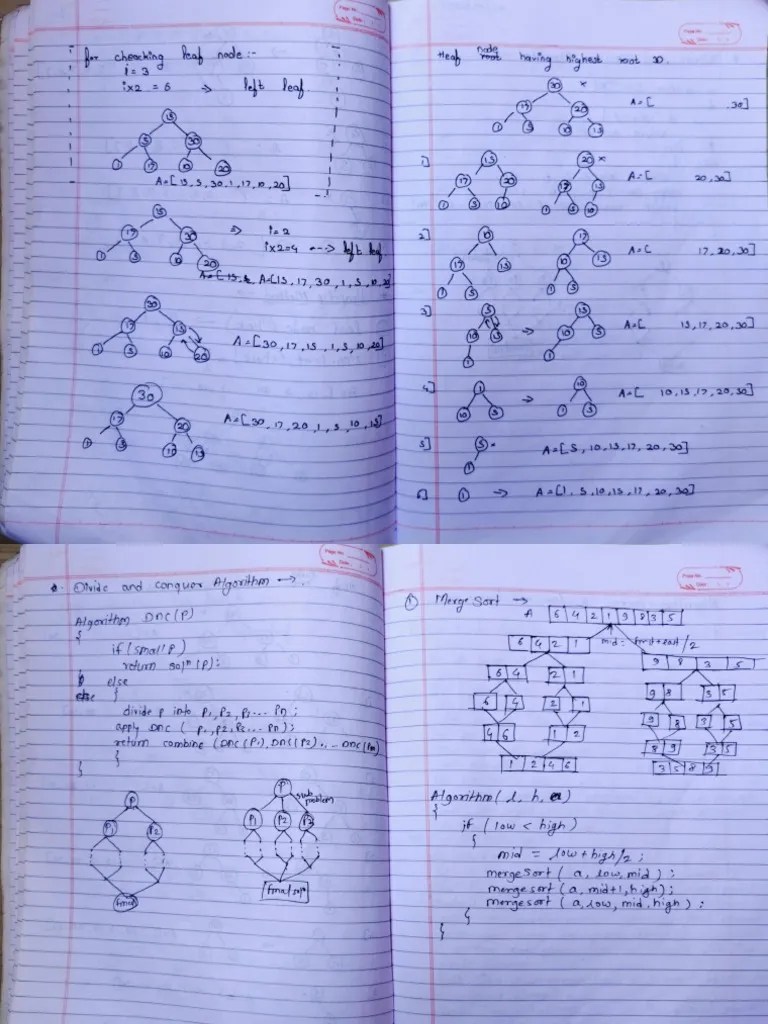 for checking leaf node :-
i = 3
i×2 = 6 → left leaf
15
5 30
1 17 10 20
A = [15, 5, 30, 1, 17, 10, 20]
15
17 30
1 5 10 20
i = 2
i×2=4 ---> left leaf
A=[15, 17, 30, 1, 5, 10, 20]
30
17 15
1 5 10 20
A = [30, 17, 15, 1, 5, 10, 20]
30
17 20
1 5 10 15
A = [30, 17, 20, 1, 5, 10, 15]
Page No.
Date
node
having highest root 30.
30 ×
17 20
1 5 10 15
A = [ 30]
1]
15 20 ×
17 20 17 15
1 5 10 1 5 10
A = [ 20, 30]
2]
10 17
17 15 10 15
1 5 1 5
A = [ 17, 20, 30]
3]
5
10 15 → 10 5
1 1
A = [ 15, 17, 20, 30]
4]
1 → 10
10 5 1 5
A = [ 10, 15, 17, 20, 30]
5]
5
1
A = [5, 10, 15, 17, 20, 30]
6] 1 → A = [1, 5, 10, 15, 17, 20, 30]
Page No.
Date
Divide and conquer Algorithm →.
Algorithm DnC (P)
{
if (small P)
return solⁿ (P);
else
{
divide P into P1, P2, P3 ... Pn ;
apply DnC ( P1, P2, ... Pn);
return combine (DnC (P1), DnC (P2) ... DnC (Pn)
}
}
P
P1 P2
final
P
sub
problem
P1 P2
final solⁿ
Page No.
Date
① Merge Sort →
A 6 4 2 1 9 8 3 5
6 4 2 1
9 8 3 5
6 4 2 1
9 8 3 5
6 4 2 1
9 8 3 5
4 6 1 2
8 9 3 5
1 2 4 6
3 5 8 9
Algorithm ( l, h, a)
{
if (low < high)
{
mid = low + high/2 ;
merge sort ( a, low, mid ) ;
merge sort ( a, mid+1, high);
merge sort ( a, low, mid, high ) ;
}
}